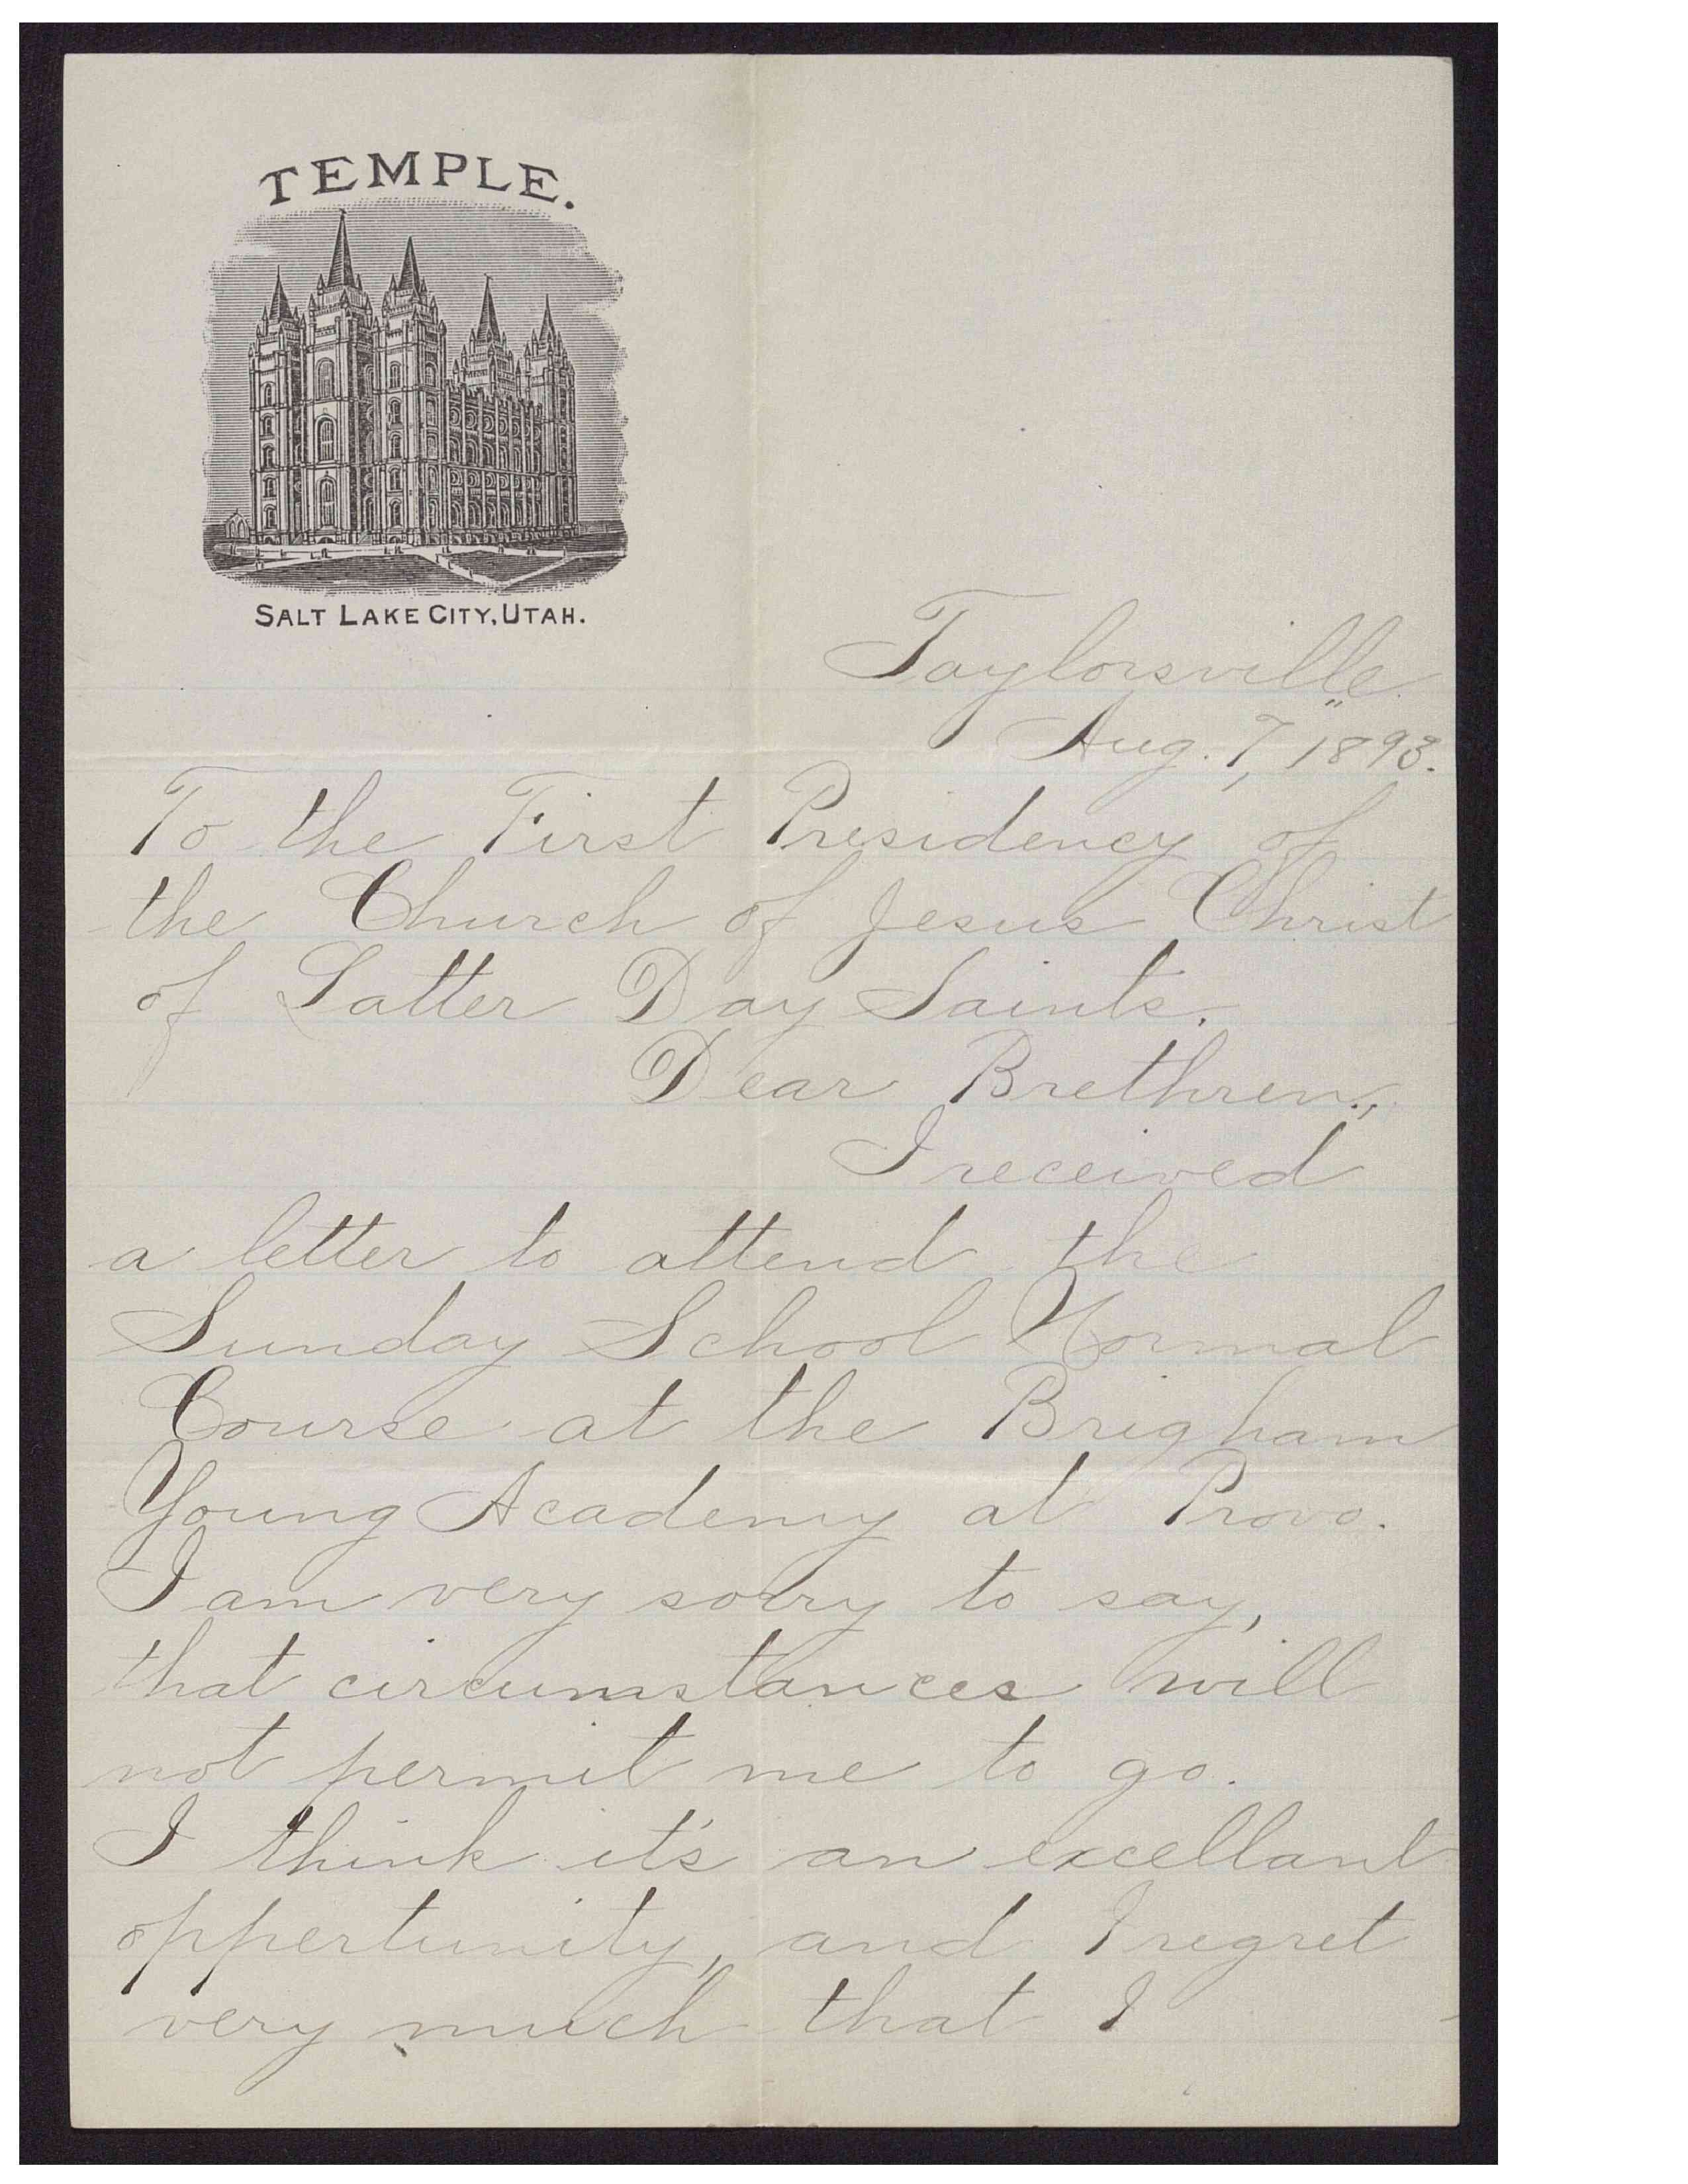 TEMPLE.
SALT LAKE CITY, UTAH.
Taylorsville
Aug. 7, 1893.
To the First Presidency of
the Church of Jesus Christ
of Latter Day Saints.
Dear Brethren.,
I received
a letter to attend the
Sunday School Normal
Course at the Brigham
Young Academy at Provo.
I am very sorry to say,
that circumstances will
not permit me to go.
I think it's an excellant
oppertunity, and I regret
very much that I